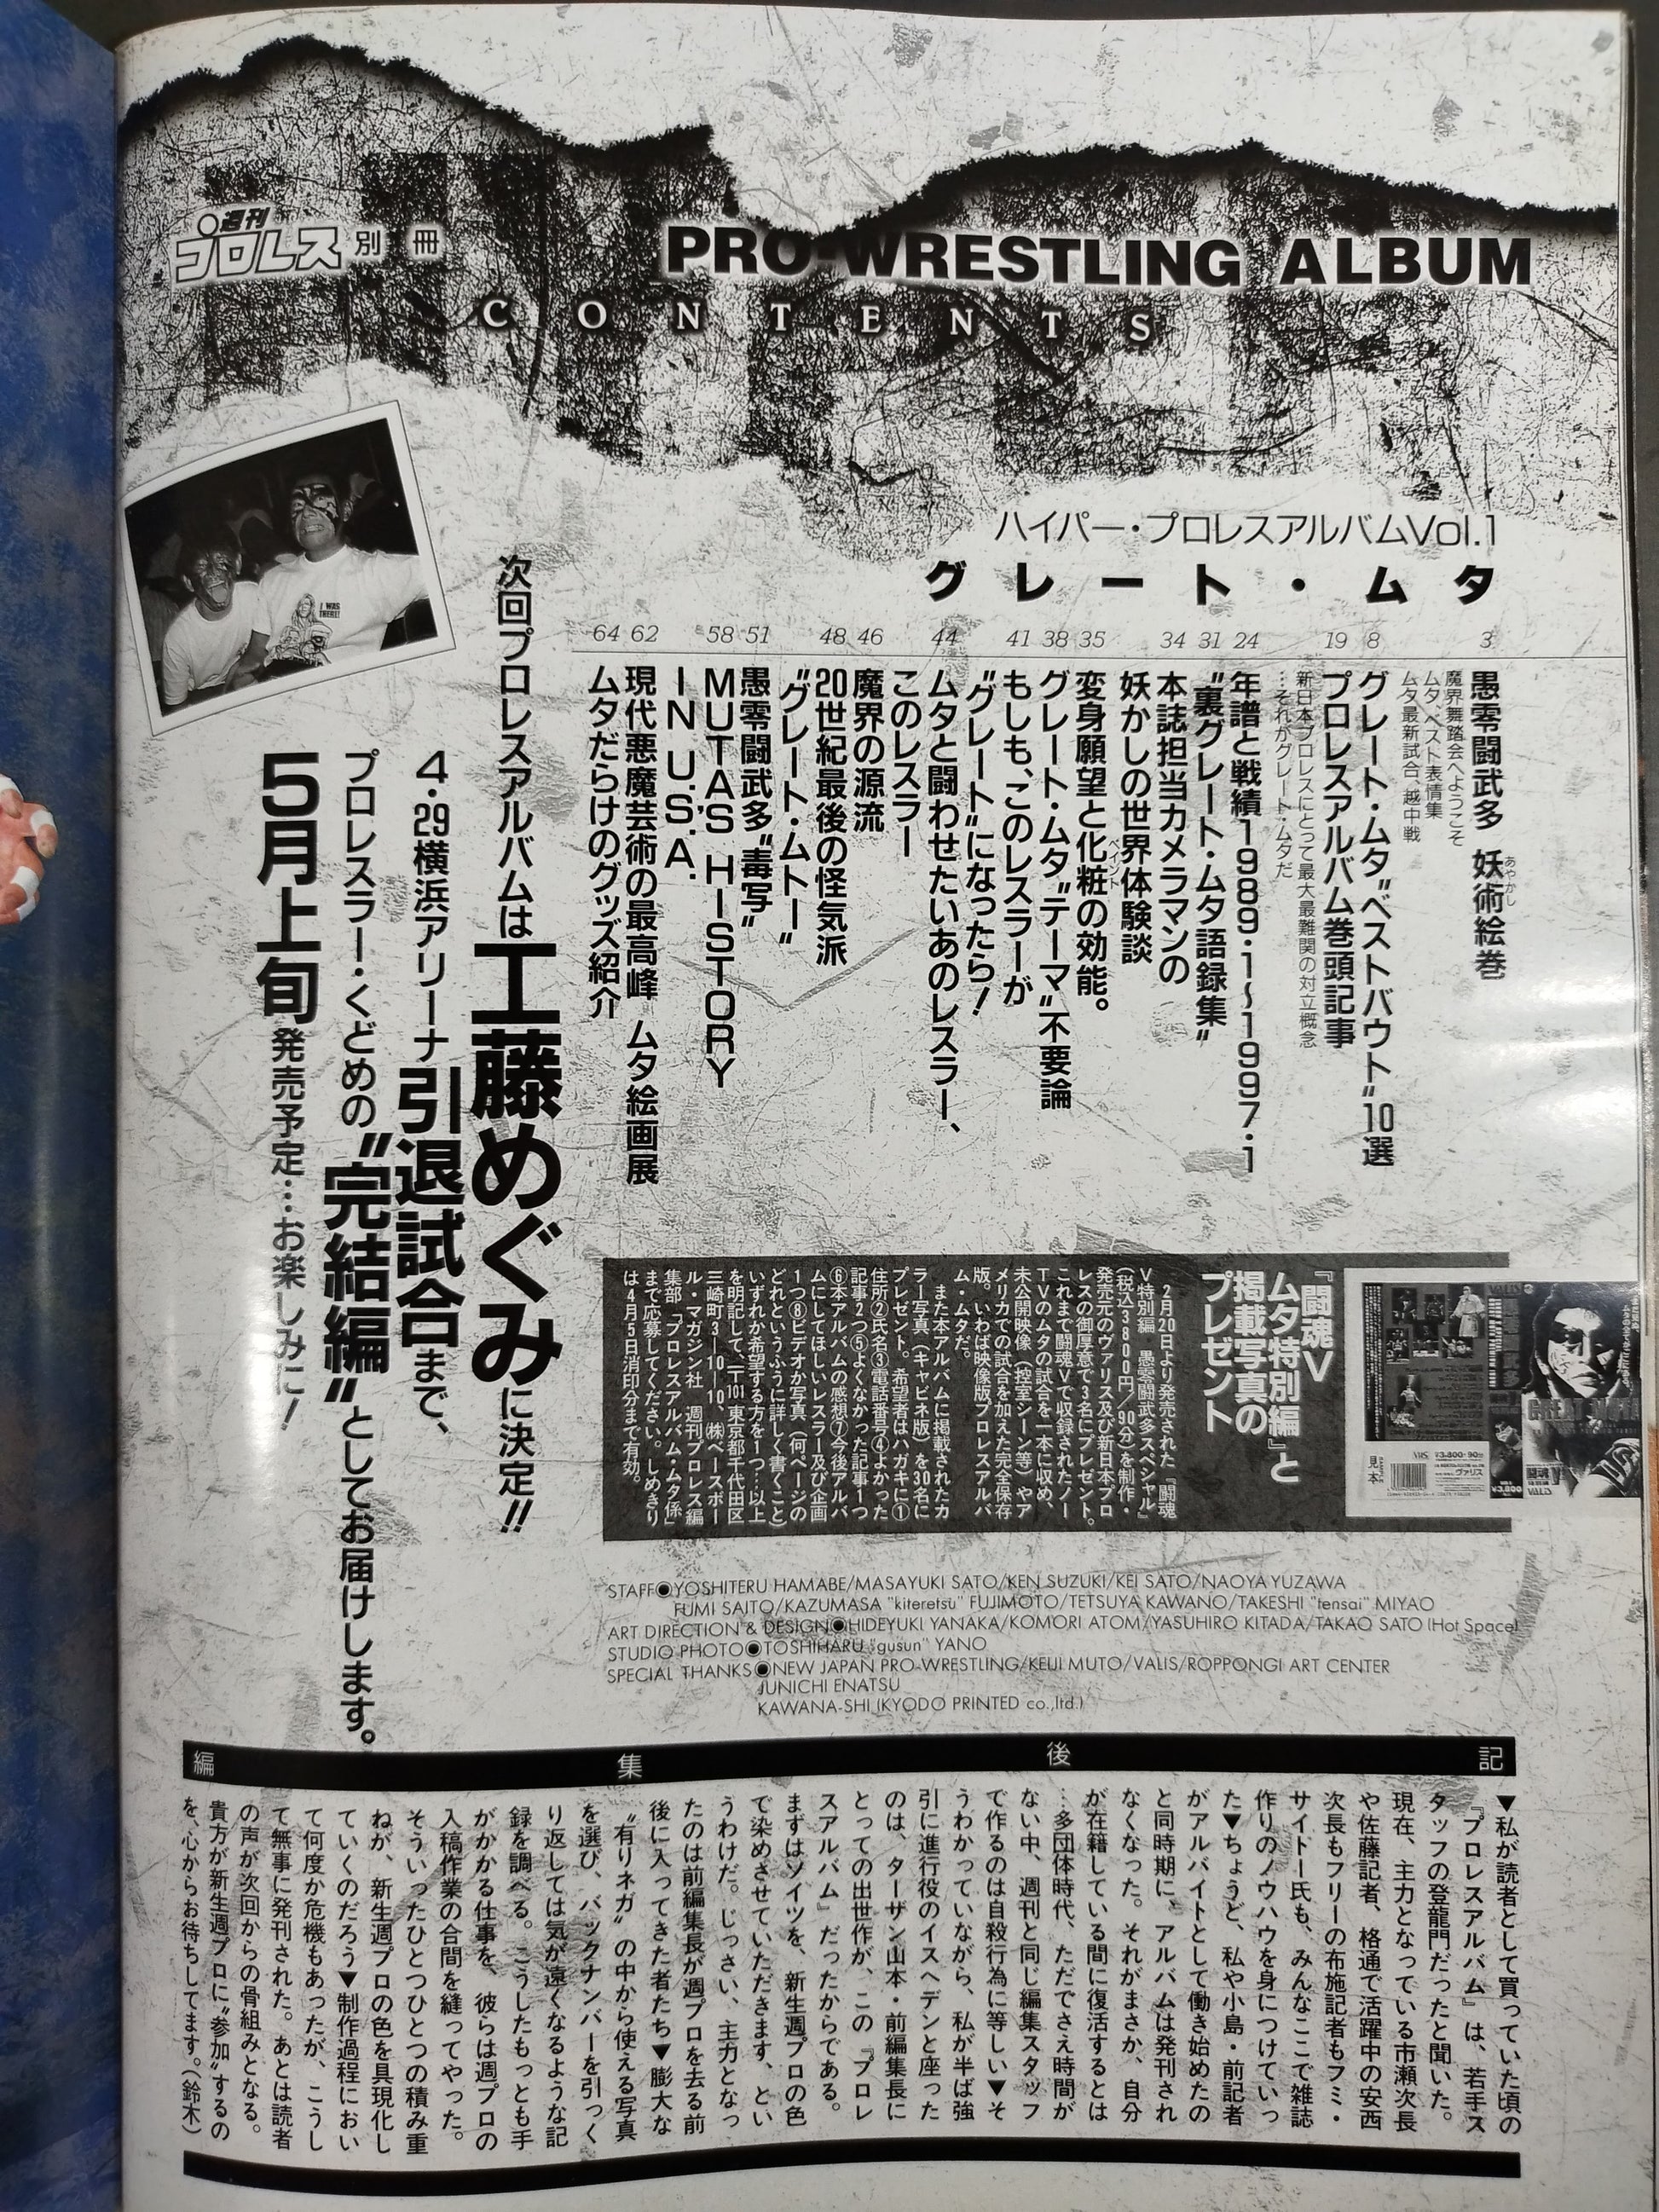 週刊
プロレス別冊
PRO-WRESTLING ALBUM
CONTENTS
ハイパー・プロレスアルバムVol.1
グレート・ムタ
3
愚零闘武多 妖術絵巻
あやかし
魔界舞踏会へようこそ
ムタ、ベスト表情集
ムタ最新試合、越中戦
8
グレート・ムタ〝ベストバウト〟10選
19
プロレスアルバム巻頭記事
新日本プロレスにとって最大最難関の対立概念
…それがグレート・ムタだ
24
年譜と戦績1989・1〜1997・1
31
〝裏グレート・ムタ語録集〟
34
本誌担当カメラマンの
妖かしの世界体験談
35
変身願望と化粧の効能。
ペイント
38
グレート・ムタ〝テーマ〟不要論
41
もしも、このレスラーが
〝グレート〟になったら!
44
ムタと闘わせたいあのレスラー、
このレスラー
46
魔界の源流
48
20世紀最後の怪気派
〝グレート・ムトー〟
51
愚零闘武多〝毒写〟
58
MUTA'S HISTORY
IN U.S.A.
62
現代悪魔芸術の最高峰 ムタ絵画展
64
ムタだらけのグッズ紹介
I WAS
THERE!
次回プロレスアルバムは工藤めぐみに決定!!
4・29横浜アリーナ引退試合まで、
プロレスラー・くどめの〝完結編〟としてお届けします。
5月上旬発売予定…お楽しみに!
『闘魂V
ムタ特別編』と
掲載写真の
プレゼント
2月20日より発売された『闘魂
V特別編 愚零闘武多スペシャル』
(税込3800円/90分)を制作・
発売元のヴァリス及び新日本プロ
レスの御厚意で3名にプレゼント。
これまで闘魂Vで収録されたノー
TVのムタの試合を一本に収め、
未公開映像(控室シーン等)やア
メリカでの試合を加えた完全保存
版。いわば映像版プロレスアルバ
ム・ムタだ。
また本アルバムに掲載されたカ
ラー写真(キャビネ版)を30名に
プレゼント。希望者はハガキに①
住所②氏名③電話番号④よかった
記事2つ⑤よくなかった記事1つ
⑥本アルバムの感想⑦今後アルバ
ムにしてほしいレスラー及び企画
1つ⑧ビデオか写真(何ページの
どれというふうに詳しく書くこと)
いずれか希望する方を1つ…以上
を明記して、〒101東京都千代田区
三崎町3―10―10、㈱ベースボー
ル・マガジン社 週刊プロレス編
集部「プロレスアルバム・ムタ係」
まで応募してください。しめきり
は4月5日消印分まで有効。
GREAT MUTA
VALIS
VHS
¥3,800・90分
見本
ヴァリス
¥3,800
闘魂V
VALIS
STAFF◉YOSHITERU HAMABE/MASAYUKI SATO/KEN SUZUKI/KEI SATO/NAOYA YUZAWA
FUMI SAITO/KAZUMASA "kiteretsu" FUJIMOTO/TETSUYA KAWANO/TAKESHI "tensai" MIYAO
ART DIRECTION & DESIGN◉HIDEYUKI YANAKA/KOMORI ATOM/YASUHIRO KITADA/TAKAO SATO (Hot Space)
STUDIO PHOTO◉TOSHIHARU "gusun" YANO
SPECIAL THANKS◉NEW JAPAN PRO-WRESTLING/KEIJI MUTO/VALIS/ROPPONGI ART CENTER
JUNICHI ENATSU
KAWANA-SHI (KYODO PRINTED co.,ltd.)
編集後記
▼私が読者として買っていた頃の
『プロレスアルバム』は、若手ス
タッフの登龍門だったと聞いた。
現在、主力となっている市瀬次長
や佐藤記者、格通で活躍中の安西
次長もフリーの布施記者もフミ・
サイトー氏も、みんなここで雑誌
作りのノウハウを身につけていっ
た▼ちょうど、私や小島・前記者
がアルバイトとして働き始めたの
と同時期に、アルバムは発刊され
なくなった。それがまさか、自分
が在籍している間に復活するとは
…多団体時代、ただでさえ時間が
ない中、週刊と同じ編集スタッフ
で作るのは自殺行為に等しい▼そ
うわかっていながら、私が半ば強
引に進行役のイスへデンと座った
のは、ターザン山本・前編集長に
とっての出世作が、この『プロレ
スアルバム』だったからである。
まずはソイツを、新生週プロの色
で染めさせていただきます、とい
うわけだ。じっさい、主力となっ
たのは前編集長が週プロを去る前
後に入ってきた者たち▼膨大な
〝有りネガ〟の中から使える写真
を選び、バックナンバーを引っく
り返しては気が遠くなるような記
録を調べる。こうしたもっとも手
がかかる仕事を、彼らは週プロの
入稿作業の合間を縫ってやった。
そういったひとつひとつの積み重
ねが、新生週プロの色を具現化し
ていくのだろう▼制作過程におい
て何度か危機もあったが、こうし
て無事に発刊された。あとは読者
の声が次回からの骨組みとなる。
貴方が新生週プロに〝参加〟するの
を、心からお待ちしてます。(鈴木)